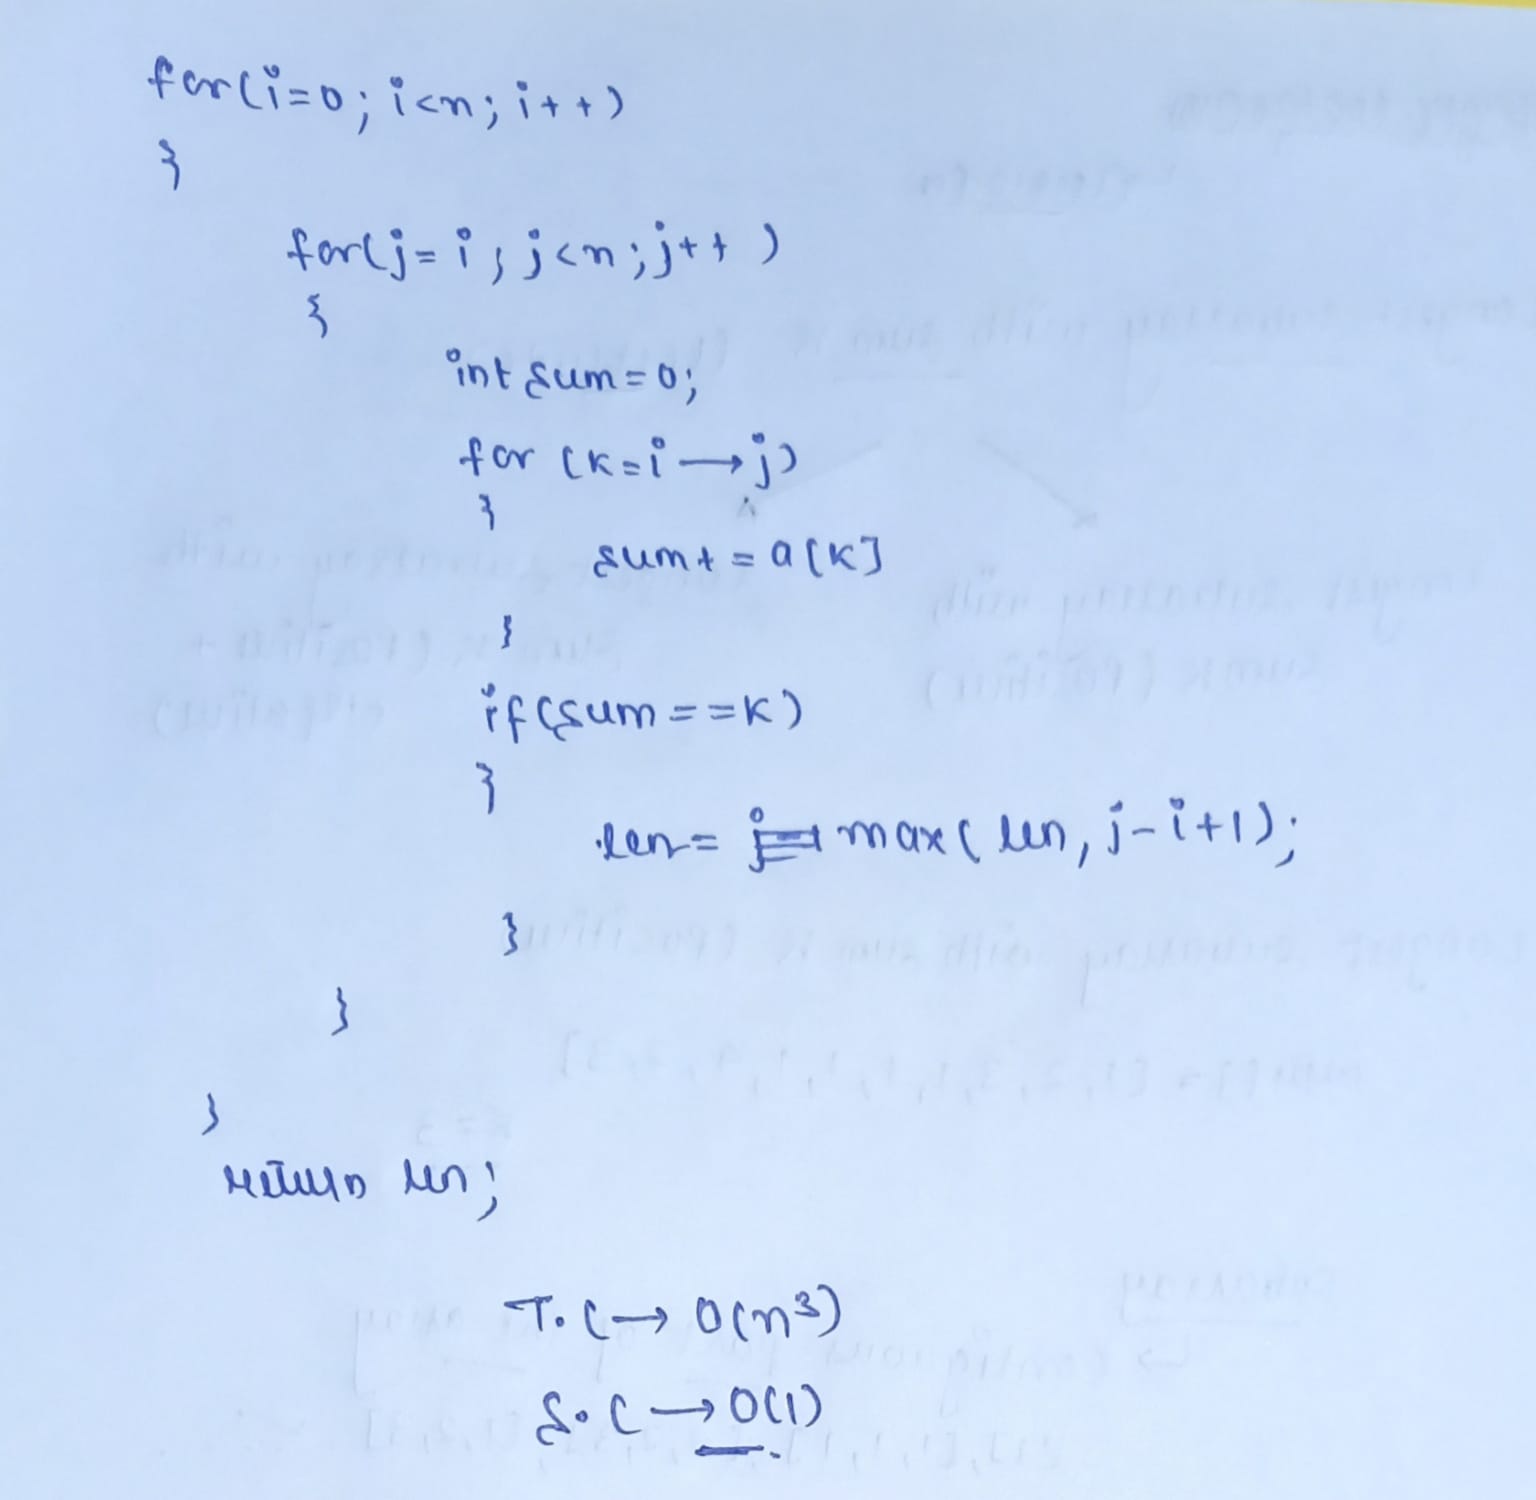 for(i=0; i<n; i++)
{
for(j=i; j<n; j++)
{
int sum=0;
for (k=i→j)
{
sum+=a[k]
}
if(sum==k)
{
len= max( len, j-i+1);
}
}
}
return len;
T.C→ O(n³)
S.C→ O(1)